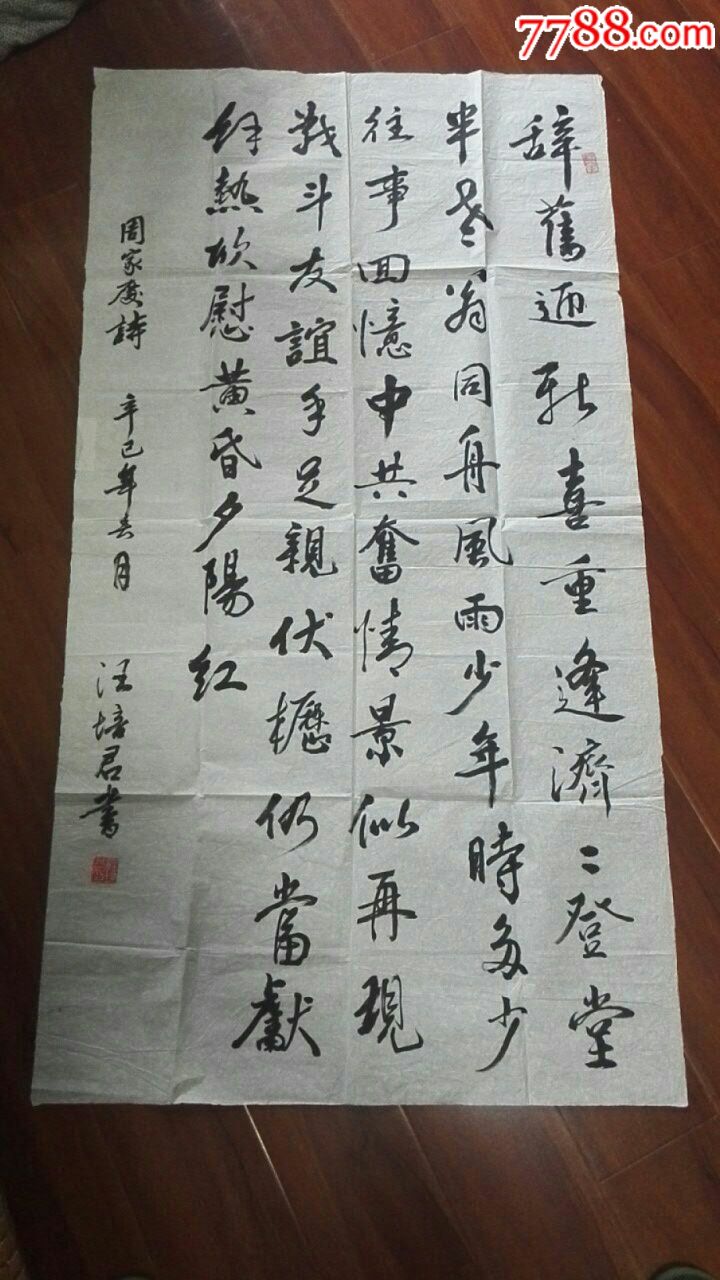 7788.com
辞舊迎新喜重逢濟〻登堂
半老翁同舟風雨少年時多少
往事回憶中共奮情景似再現
戰斗友誼手足親伏櫪仍當獻
餘熱欣慰黄昏夕陽紅
周家慶詩 辛巳年 月 汪培君書